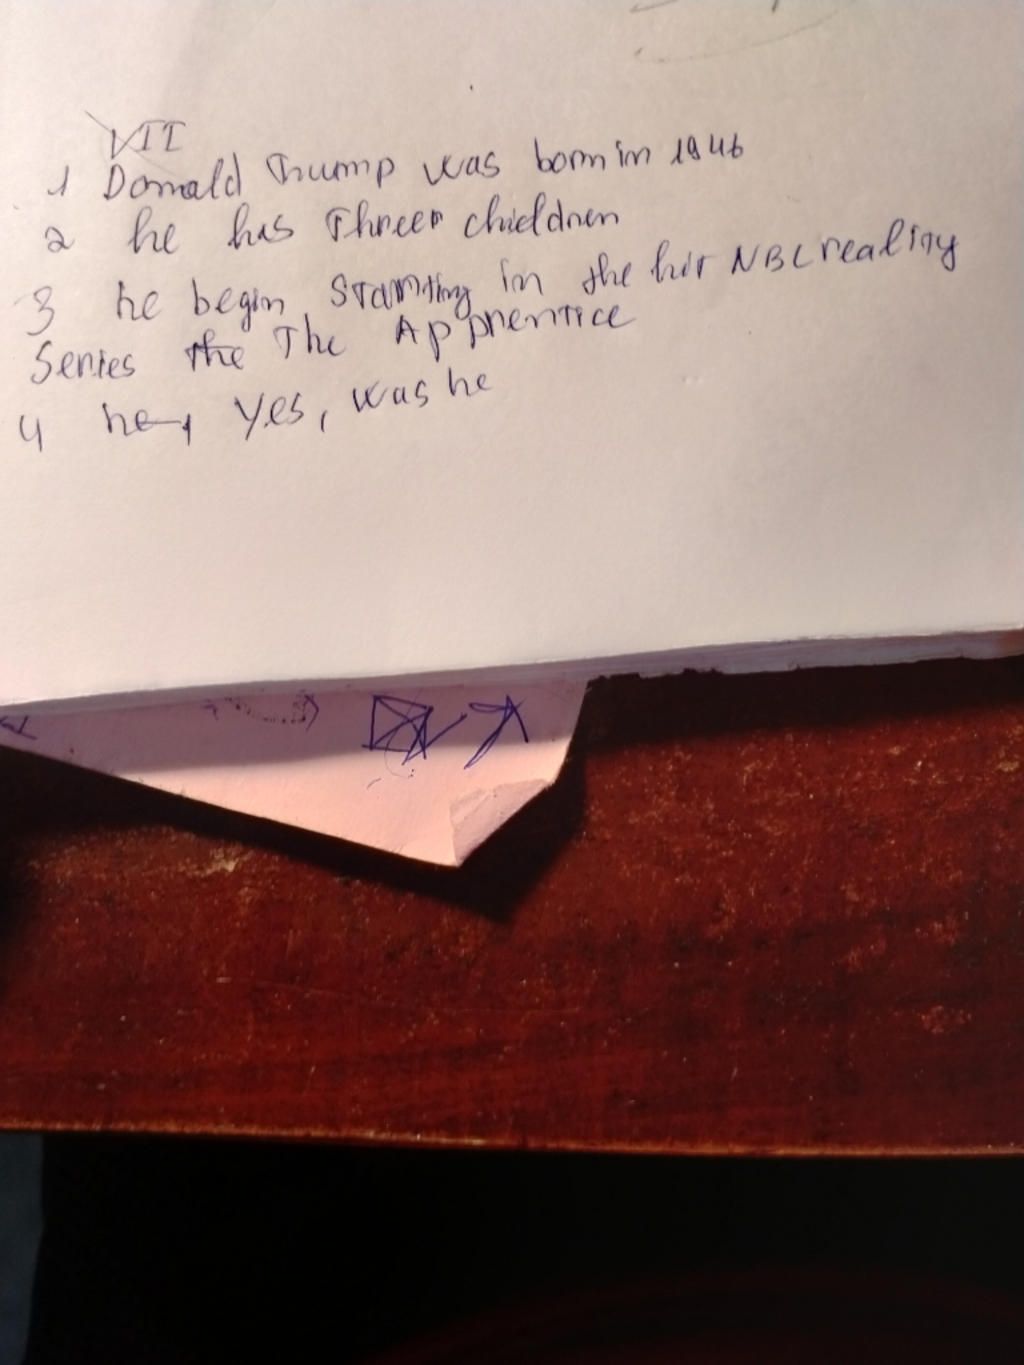 VII
1 Donald Trump was born in 1946
2 he has Threer chieldren
3 he begin Starting in the hit NBC reality
Series the The Apprentice
4 he, Yes, was he